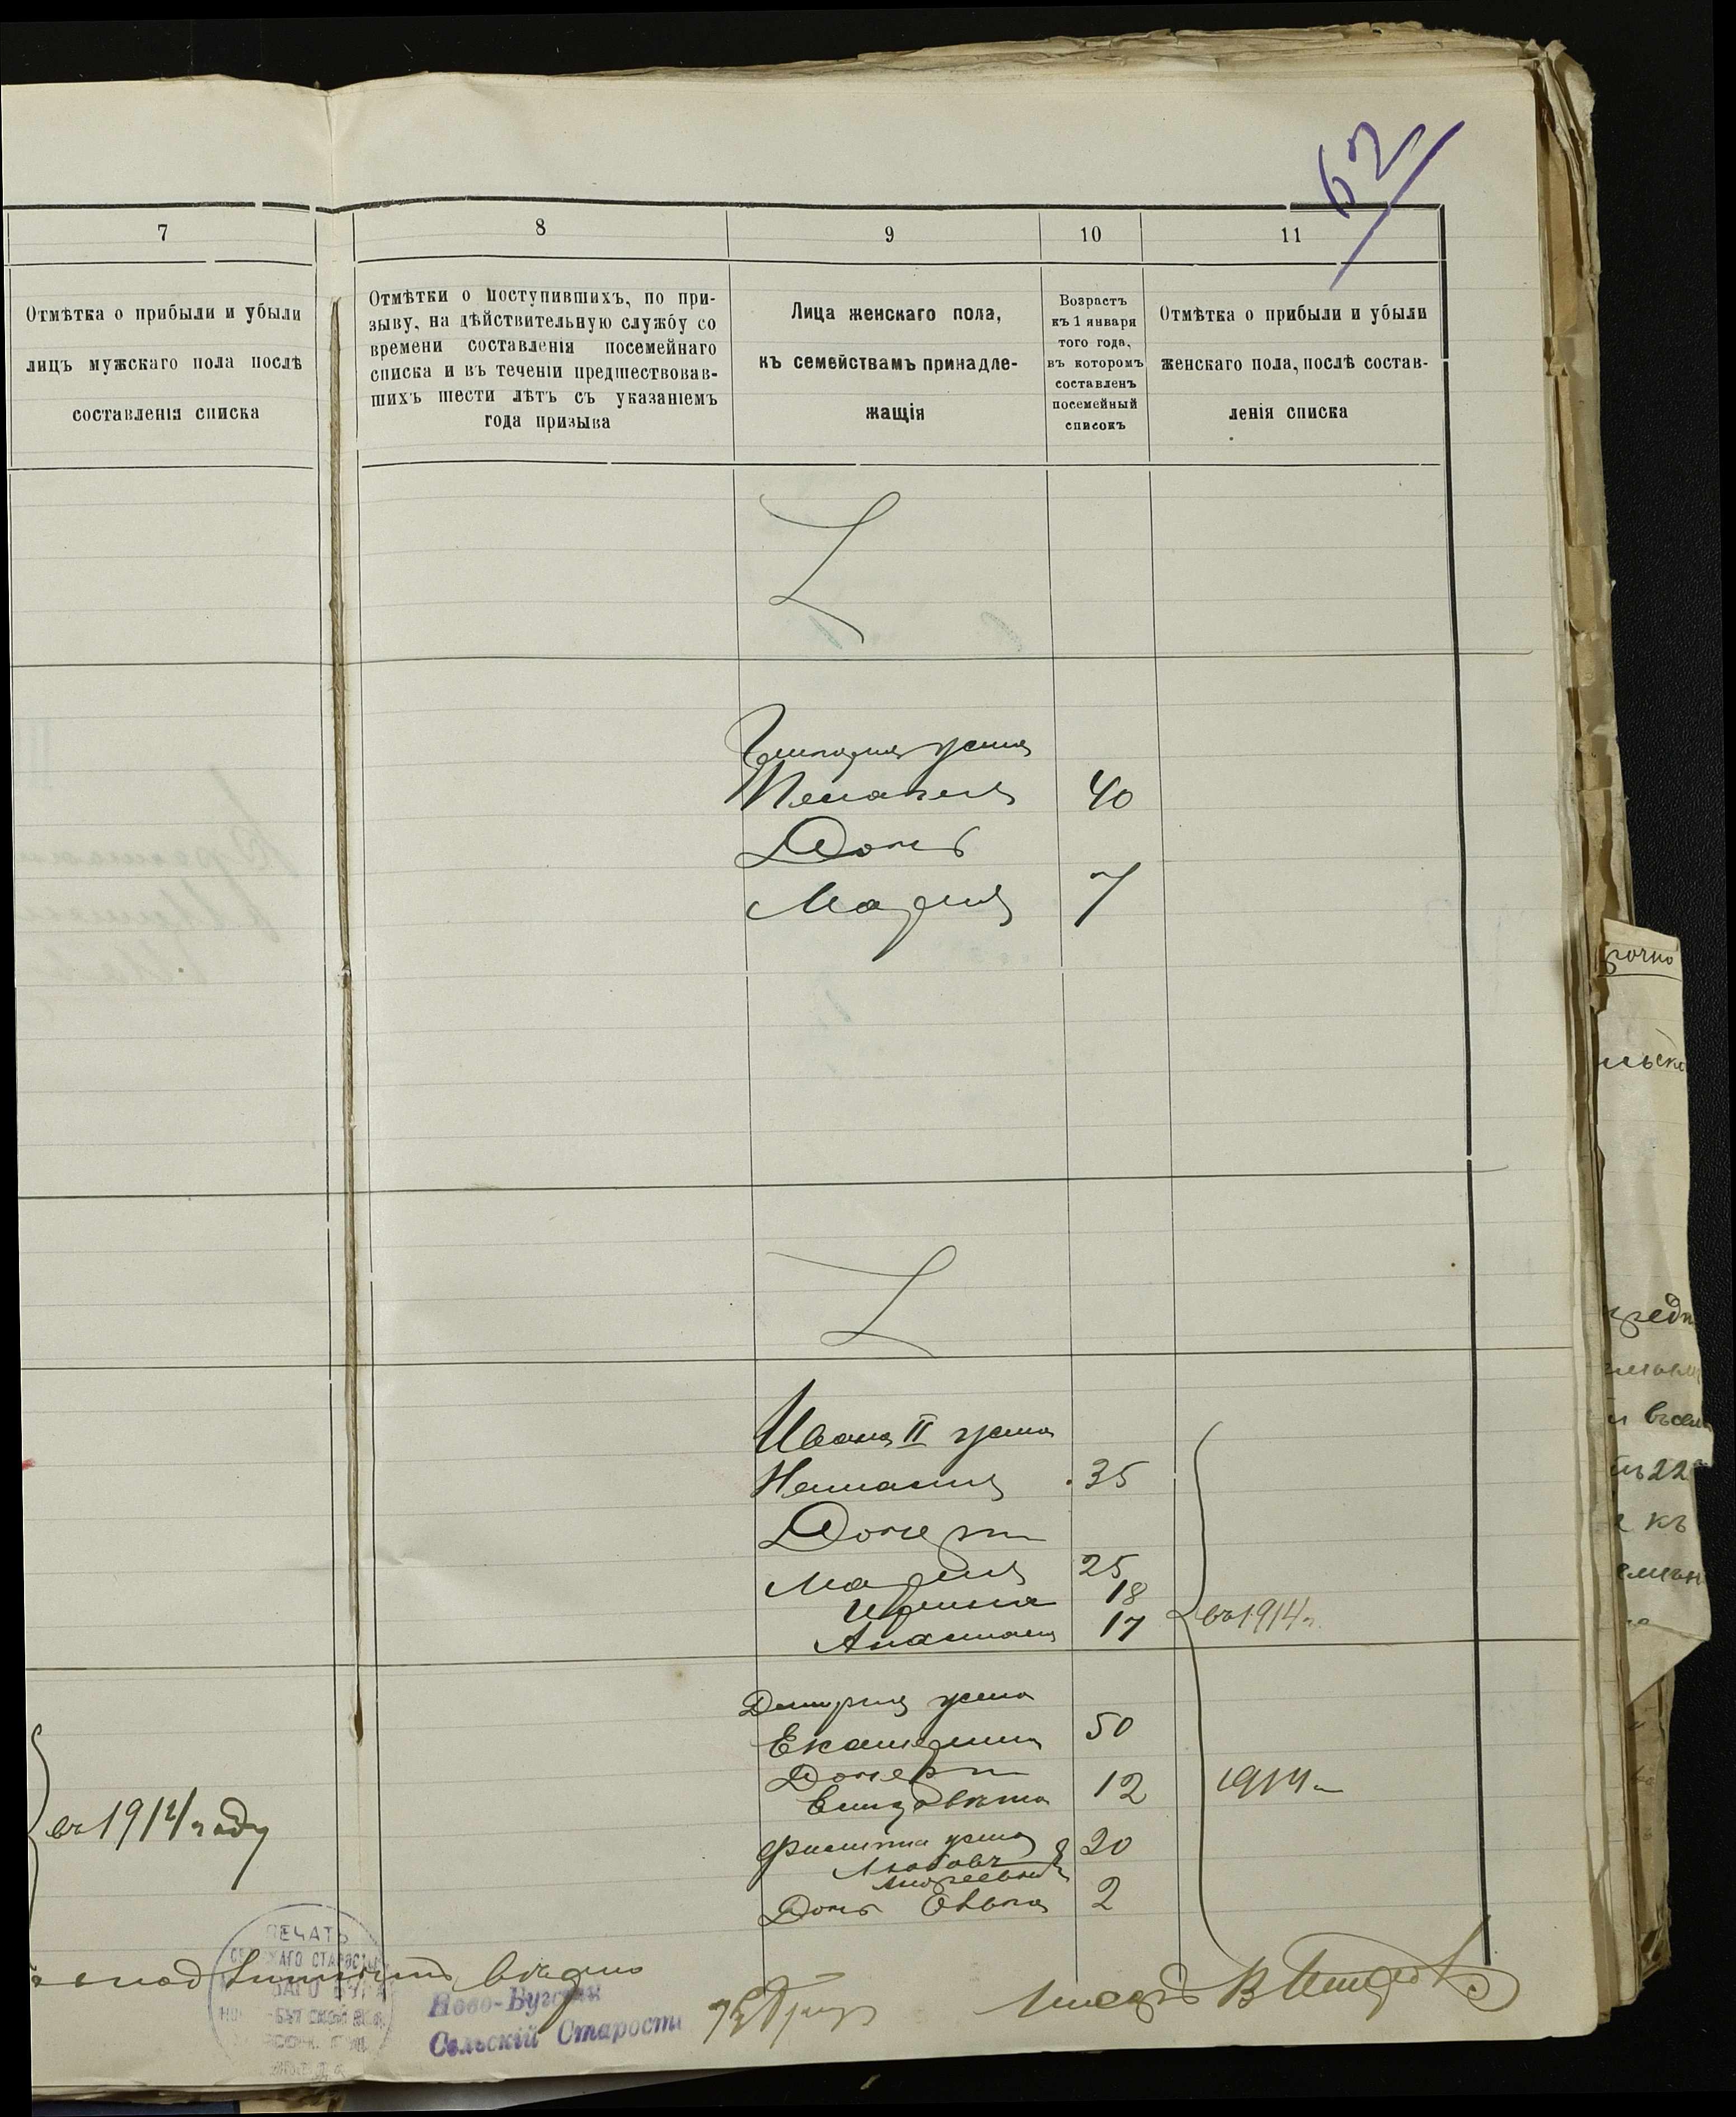 62
7
8
9
10
11
Отмѣтка о прибыли и убыли
лицъ мужскаго пола послѣ
составленія списка
Отмѣтки о поступившихъ, по при-
зыву, на дѣйствительную службу со
времени составленія посемейнаго
списка и въ теченіи предшествовав-
шихъ шести лѣтъ съ указаніемъ
года призыва
Лица женскаго пола,
къ семействамъ принадле-
жащія
Возрастъ
къ 1 января
того года,
въ которомъ
составленъ
посемейный
списокъ
Отмѣтка о прибыли и убыли
женскаго пола, послѣ состав-
ленія списка
Григорія жена
Пелагея 40
Дочь
Марія 7
Ивана II жена
Наталія 35
Дочери
Марія 25
Ирина 18
Анастасія 17
въ 1914 г.
Дмитрія жена
Екатерина 50
Дочери
Елизавета 12
1914
Филиппа жена 20
Любовь
Андреевна
Дочь 2
въ 1914 году
ПЕЧАТЬ
Ново-Бугскій
Сельскій Староста
Писарь
рочно
къ